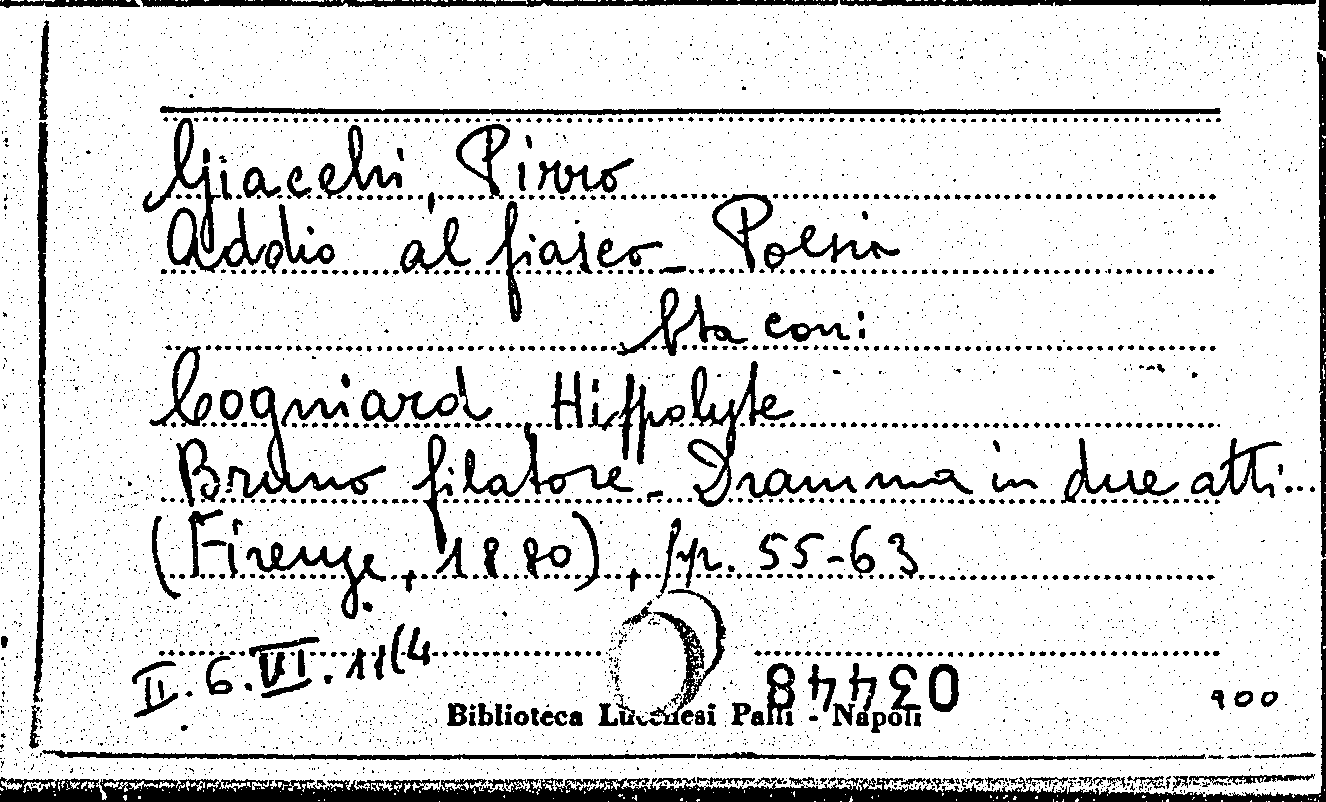 Giacchi, Pirro
Addio al fiasco_ Poesia
Sta con:
Cogniard, Hippolyte
Bruno filatore_ Dramma in due atti...
(Firenze, 1880), pp. 55-63
II.6.VI.11(4
03448
900
Biblioteca Lucchesi Palli - Napoli